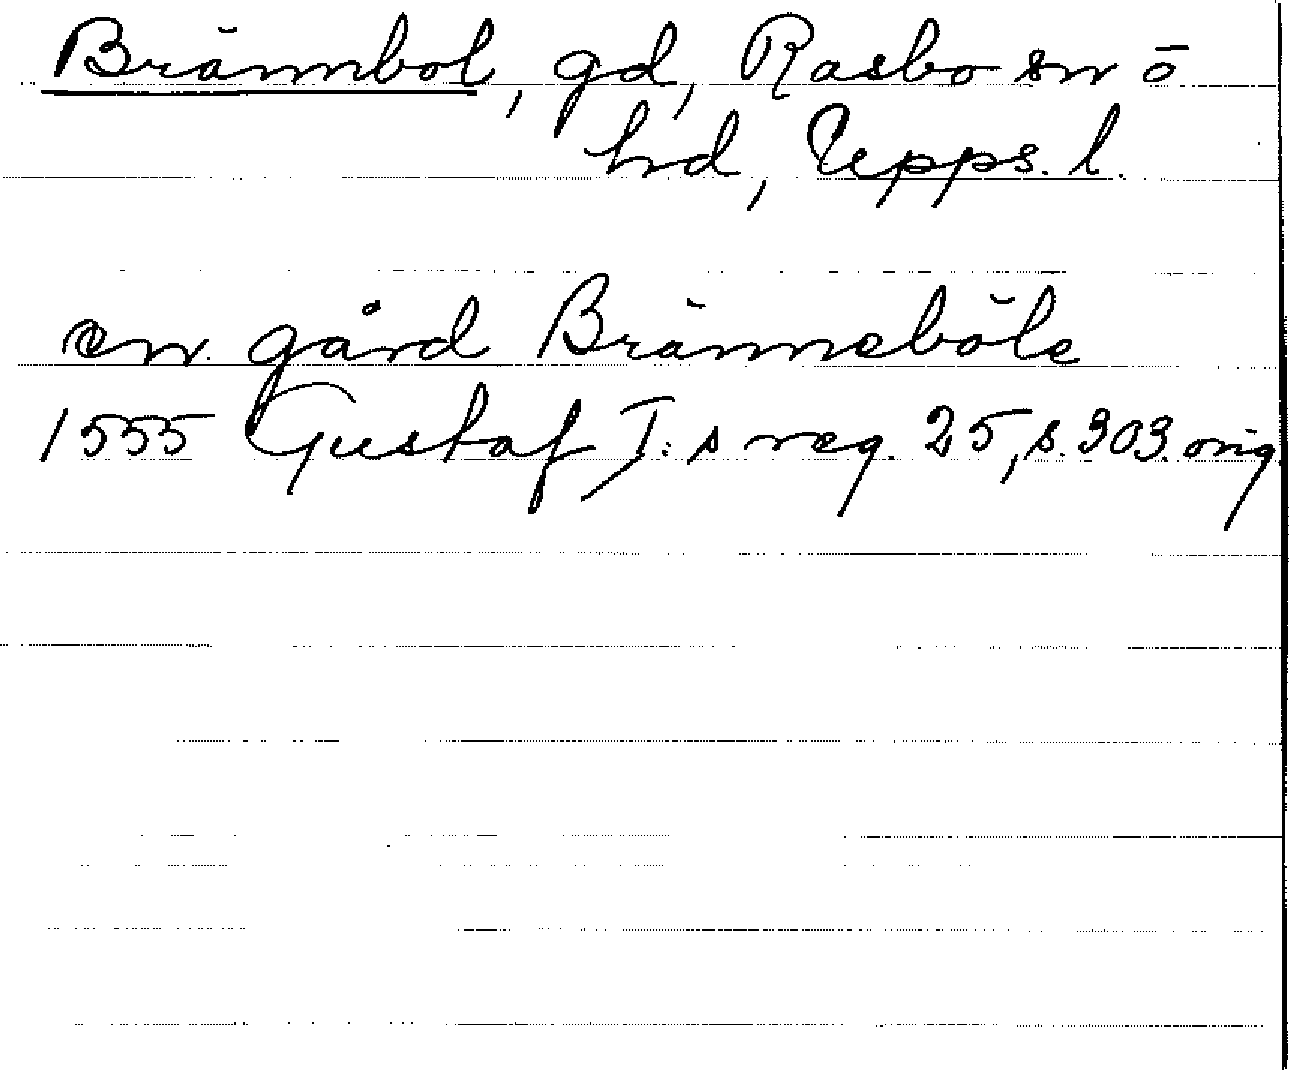 Brännbol, gd, Rasbo sn o
hd, Upps. l.
en gård Bränneböle
1555 Gustaf I:s reg. 25, s. 303. orig